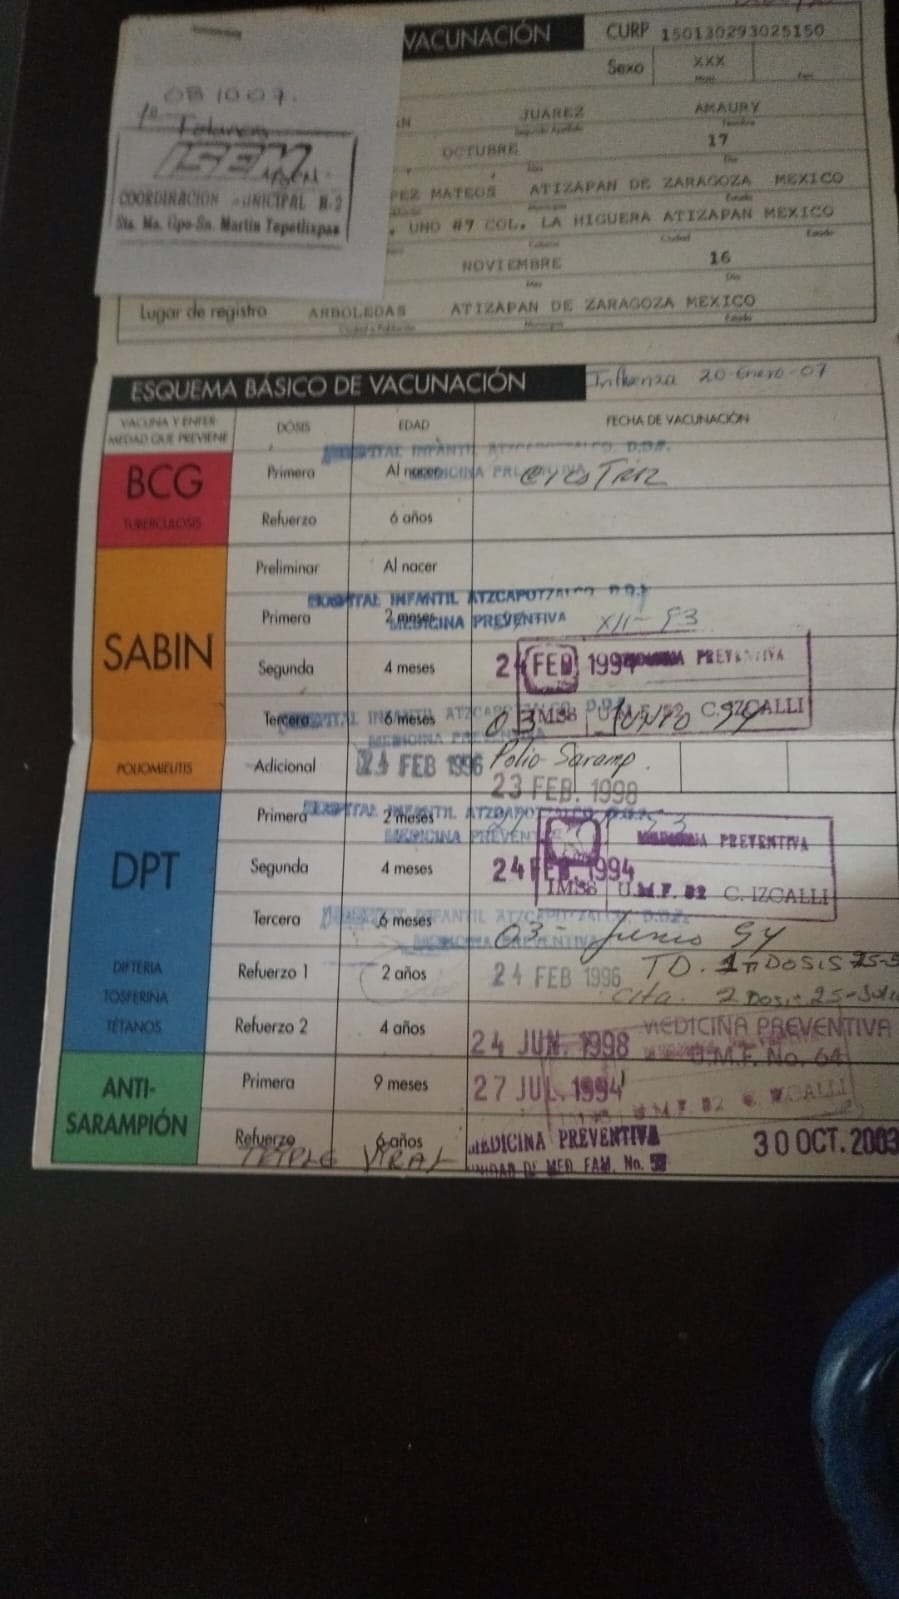 VACUNACIÓN CURP 150130293025150
Sexo XXX
OB1007.
JUAREZ AMAURY
ISEM
OCTUBRE 17
COORDINACION MUNICIPAL H-2
PEZ MATEOS ATIZAPAN DE ZARAGOZA MEXICO
UNO #7 COL. LA HIGUERA ATIZAPAN MEXICO
NOVIEMBRE 16
Lugar de registro ARBOLEDAS ATIZAPAN DE ZARAGOZA MEXICO
Ciudad o Población Municipio Estado
ESQUEMA BÁSICO DE VACUNACIÓN Influenza 20-Enero-07
VACUNA Y ENFER- DOSIS EDAD FECHA DE VACUNACIÓN
MEDAD QUE PREVIENE
HOSPITAL INFANTIL ATZCAPOTZALCO, D.D.F.
BCG Primera Al nacer MEDICINA PREVENTIVA
TUBERCULOSIS Refuerzo 6 años
Preliminar Al nacer
HOSPITAL INFANTIL ATZCAPOTZALCO D.D.F.
Primera 2 meses MEDICINA PREVENTIVA XII-93
SABIN Segunda 4 meses 24 FEB 1994 MEDICINA PREVENTIVA
IMSS U.M.F. 52 C. IZCALLI
Tercera 6 meses 03 Junio 94
HOSPITAL INFANTIL ATZCAPOTZALCO D.D.F.
MEDICINA PREVENTIVA
POLIOMIELITIS Adicional FEB 1996 Polio Saramp.
23 FEB. 1998
Primera 2 meses HOSPITAL INFANTIL ATZCAPOTZALCO D.D.F.
MEDICINA PREVENTIVA
MEDICINA PREVENTIVA
DPT Segunda 4 meses 24 FEB. 1994
IMSS U.M.F. 52 C. IZCALLI
Tercera 6 meses INFANTIL ATZCAPOTZALCO D.D.F.
MEDICINA PREVENTIVA 03- Junio 94
DIFTERIA Refuerzo 1 2 años 24 FEB 1996 TD. 1a DOSIS
TOSFERINA Cita. 2 Dosis
TÉTANOS Refuerzo 2 4 años 24 JUN. 1998 MEDICINA PREVENTIVA
U.M.F. No. 64
ANTI- Primera 9 meses 27 JUL. 1994
SARAMPIÓN Refuerzo 6 años MEDICINA PREVENTIVA 30 OCT. 2003
TRIPLE VIRAL UNIDAD DE MED. FAM. No.